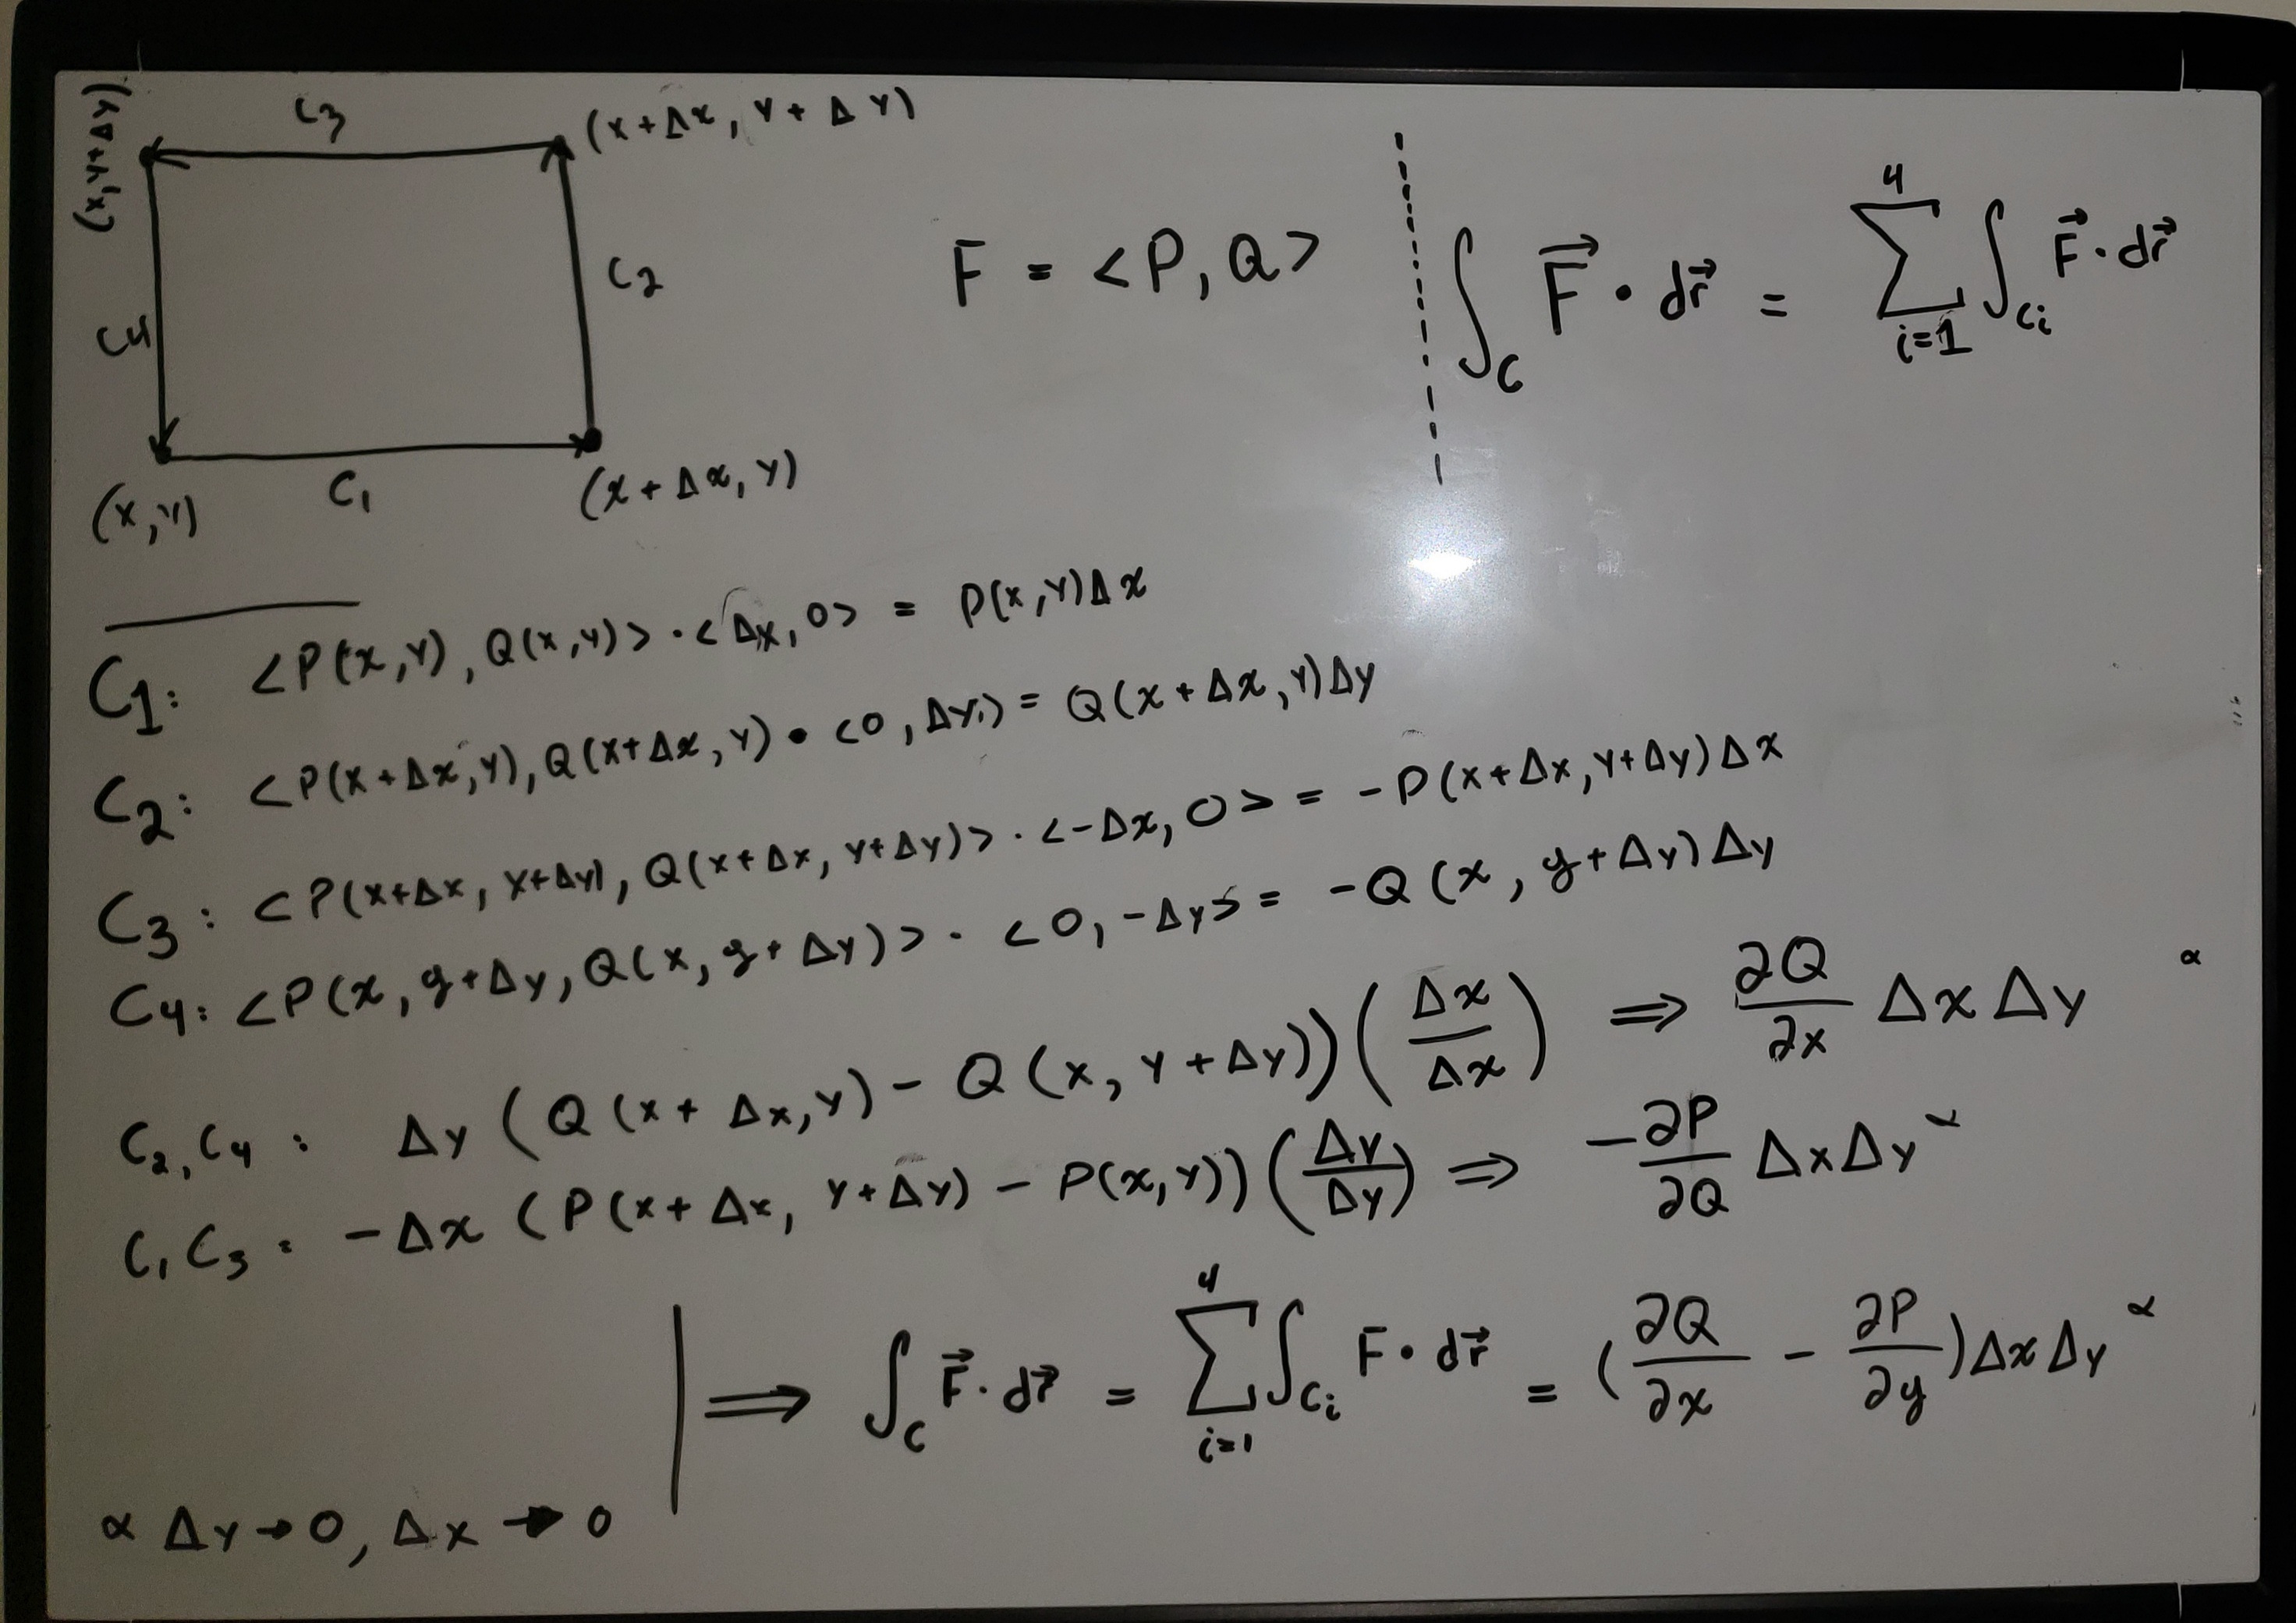 C3
(x, y+Δy)
(x+Δx, y+Δy)
C2
C4
C1
(x,y)
(x+Δx, y)
F = <P, Q>
∫_C F⃗ · dr⃗ = Σ_{i=1}^{4} ∫_{Ci} F⃗ · dr⃗
C1: <P(x,y), Q(x,y)> · <Δx, 0> = P(x,y)Δx
C2: <P(x+Δx,y), Q(x+Δx,y) • <0, Δy> = Q(x+Δx,y)Δy
C3: <P(x+Δx, y+Δy), Q(x+Δx, y+Δy)> · <-Δx, 0> = -P(x+Δx, y+Δy)Δx
C4: <P(x, y+Δy, Q(x, y+Δy)> · <0, -Δy> = -Q(x, y+Δy)Δy
C2, C4: Δy (Q(x+Δx,y) - Q(x, y+Δy)) (Δx/Δx) ⇒ ∂Q/∂x ΔxΔy ∝
C1 C3: -Δx (P(x+Δx, y+Δy) - P(x,y)) (Δy/Δy) ⇒ -∂P/∂Q ΔxΔy ∝
⇒ ∫_C F⃗ · dr⃗ = Σ_{i=1}^{4} ∫_{Ci} F · dr⃗ = (∂Q/∂x - ∂P/∂y)ΔxΔy ∝
∝ Δy→0, Δx→0